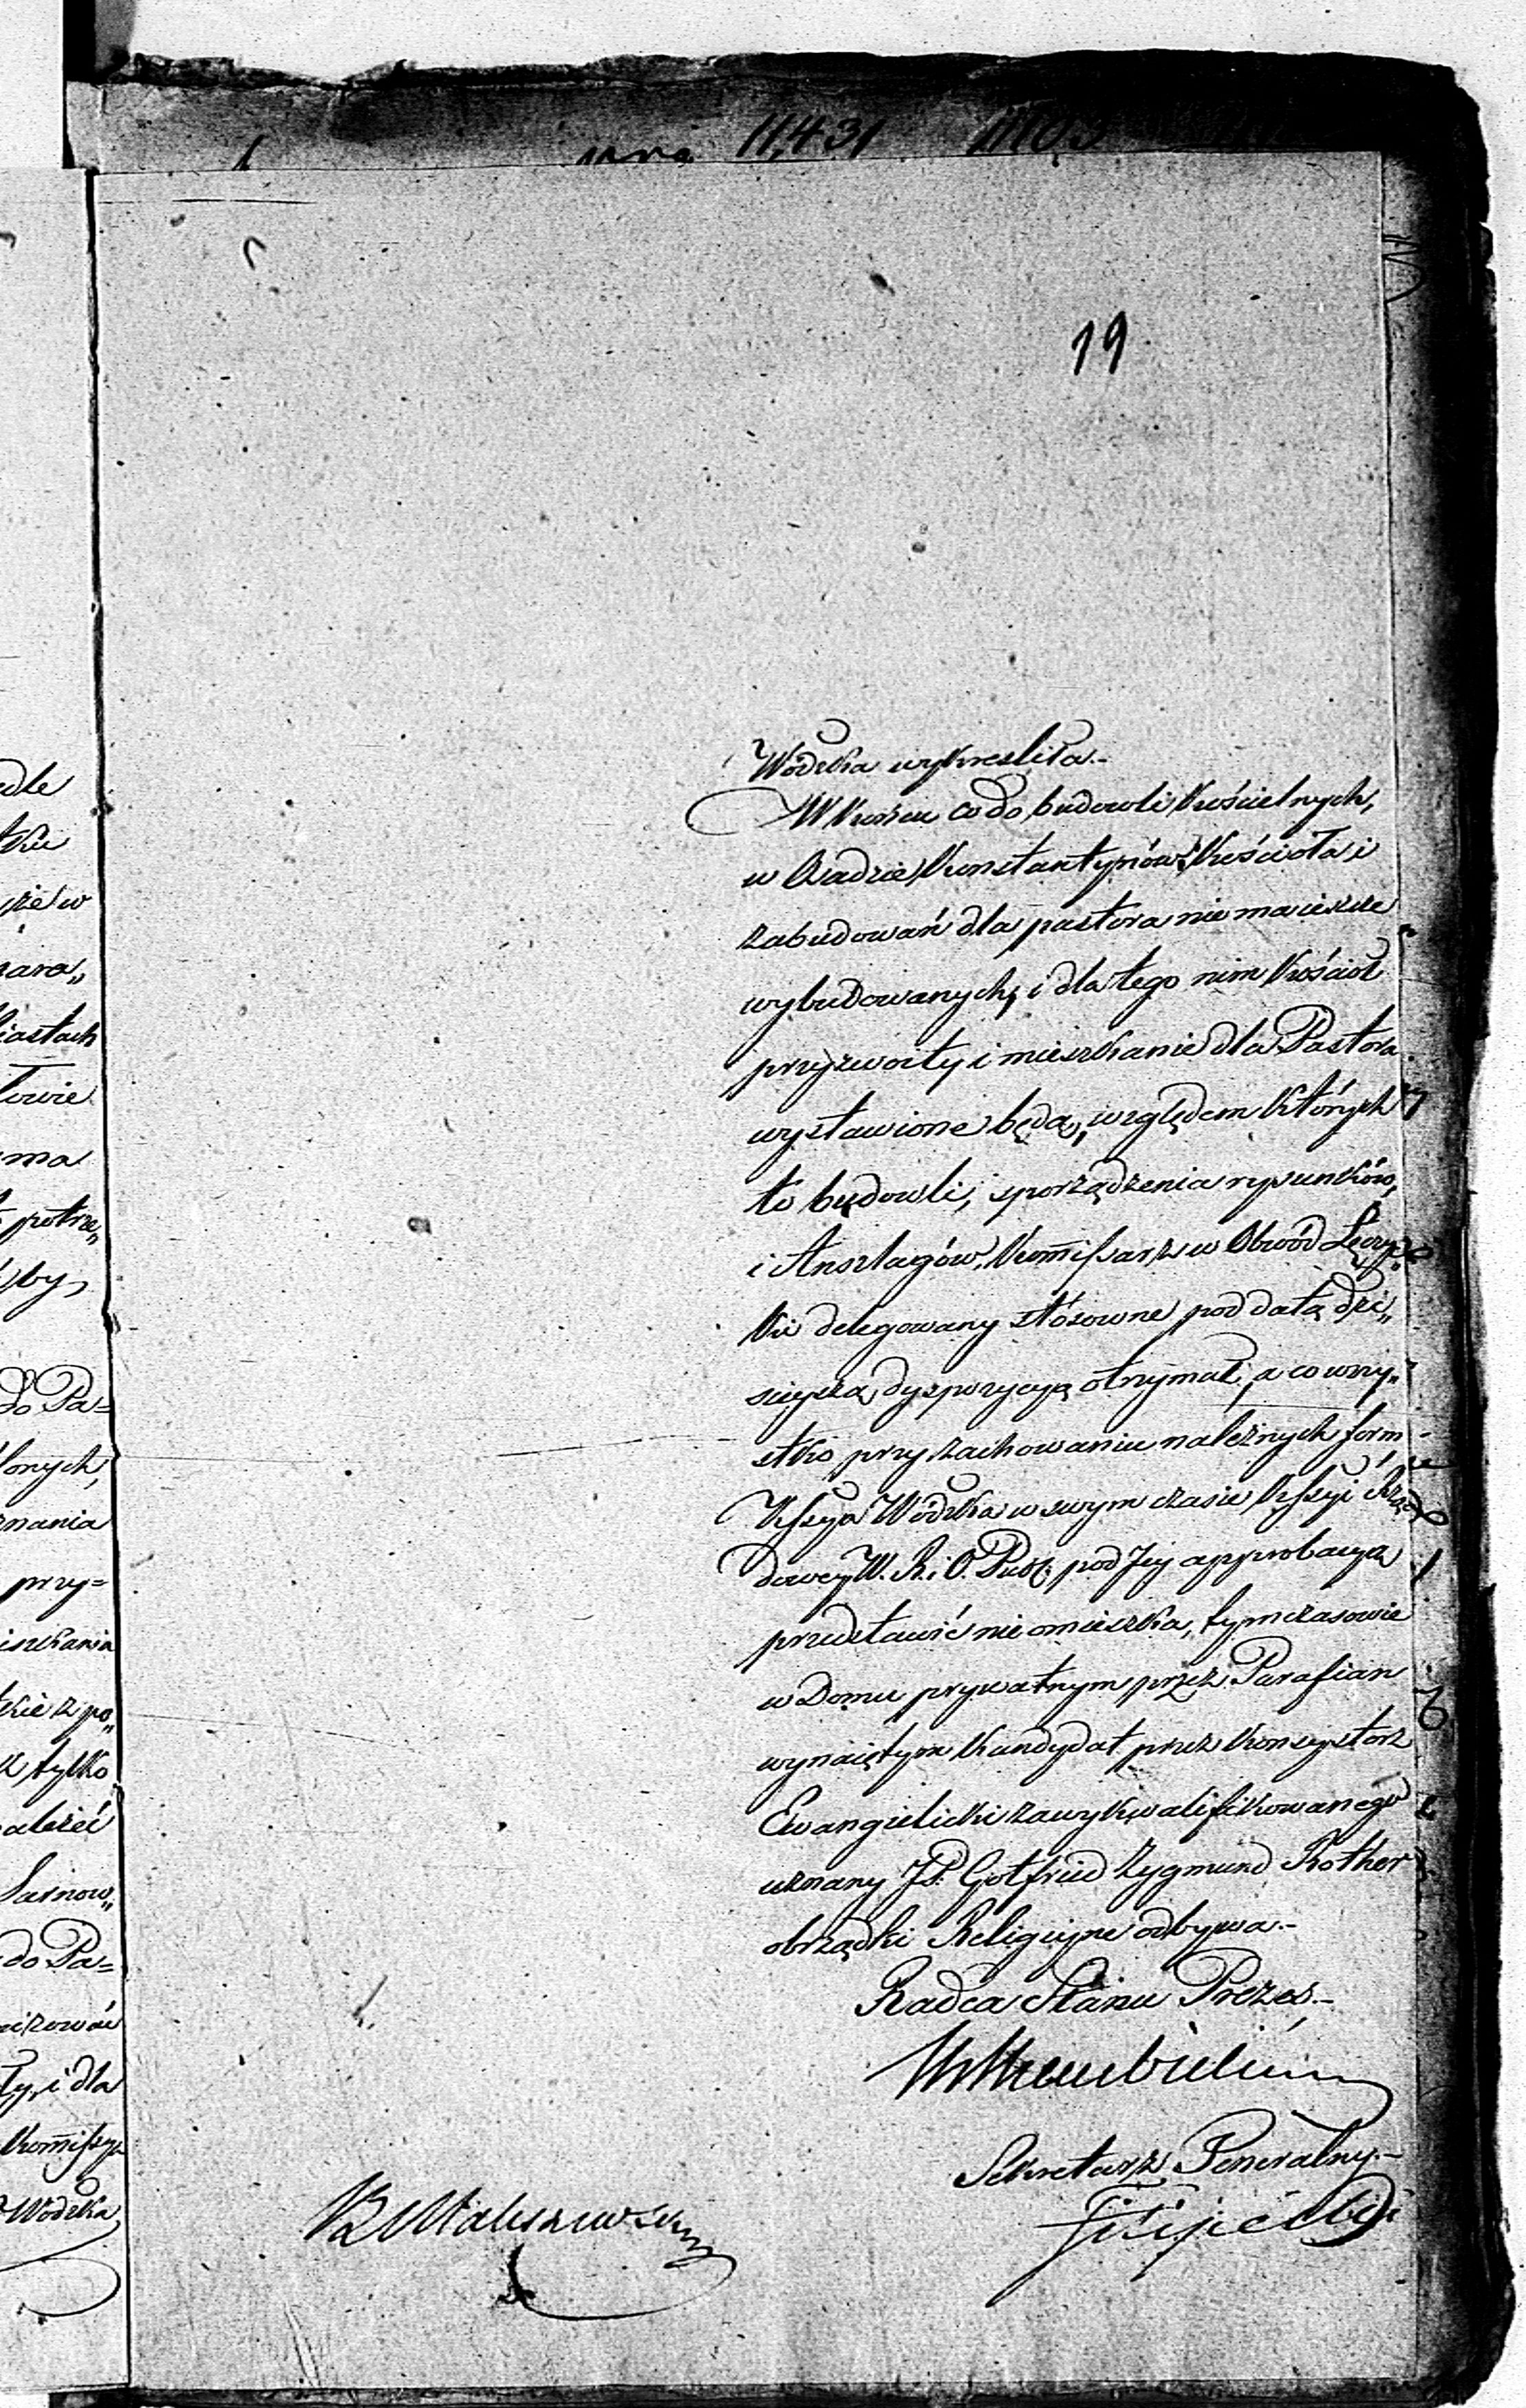 11,431
19
Wódzka wykreśliła.-
W Końcu co do budowli Kościelnych,
w Osadzie Konstantynów: Kościoła i
zabudowań dla pastora nie ma ieszcze
wybudowanych, i dla tego nim Kościół
przyzwoity i mieszkanie dla Pastora
wystawione będą, względem których
to budowli, sporządzenia rysunków,
i Anszlagów, Kommissarz w Obwód Łęczyc
ki delegowany stósowne pod datą dzi„
sieyszą dyspozycyą otrzymał, a co wszy„
stko przy zachowaniu należnych form
Kssya Wódzka w swym czasie Kssyi Rzą
dowey W. R. i O. Publ. pod Jey approbacyą
przedstawić nie omieszka, tymczasowie
w Domu prywatnym przez Parafian
wynaiętym Kandydat przez Konsystorz
Ewangielicki za wykwalifikowanego
uznany JP. Gotfried Zygmund Rother
obrządki Religiyne odbywa.-
Radca Stanu Prezes.-
Sekretarz Generalny.-
edle
że w
iastach
ma
potrze„
by,
do Pa=
onych,
znania
przy=
eszkania
kie z po„
k tylko
ależeć
Sarnow„
do Pa=
ty, i dla
Kommissya
Wódzka